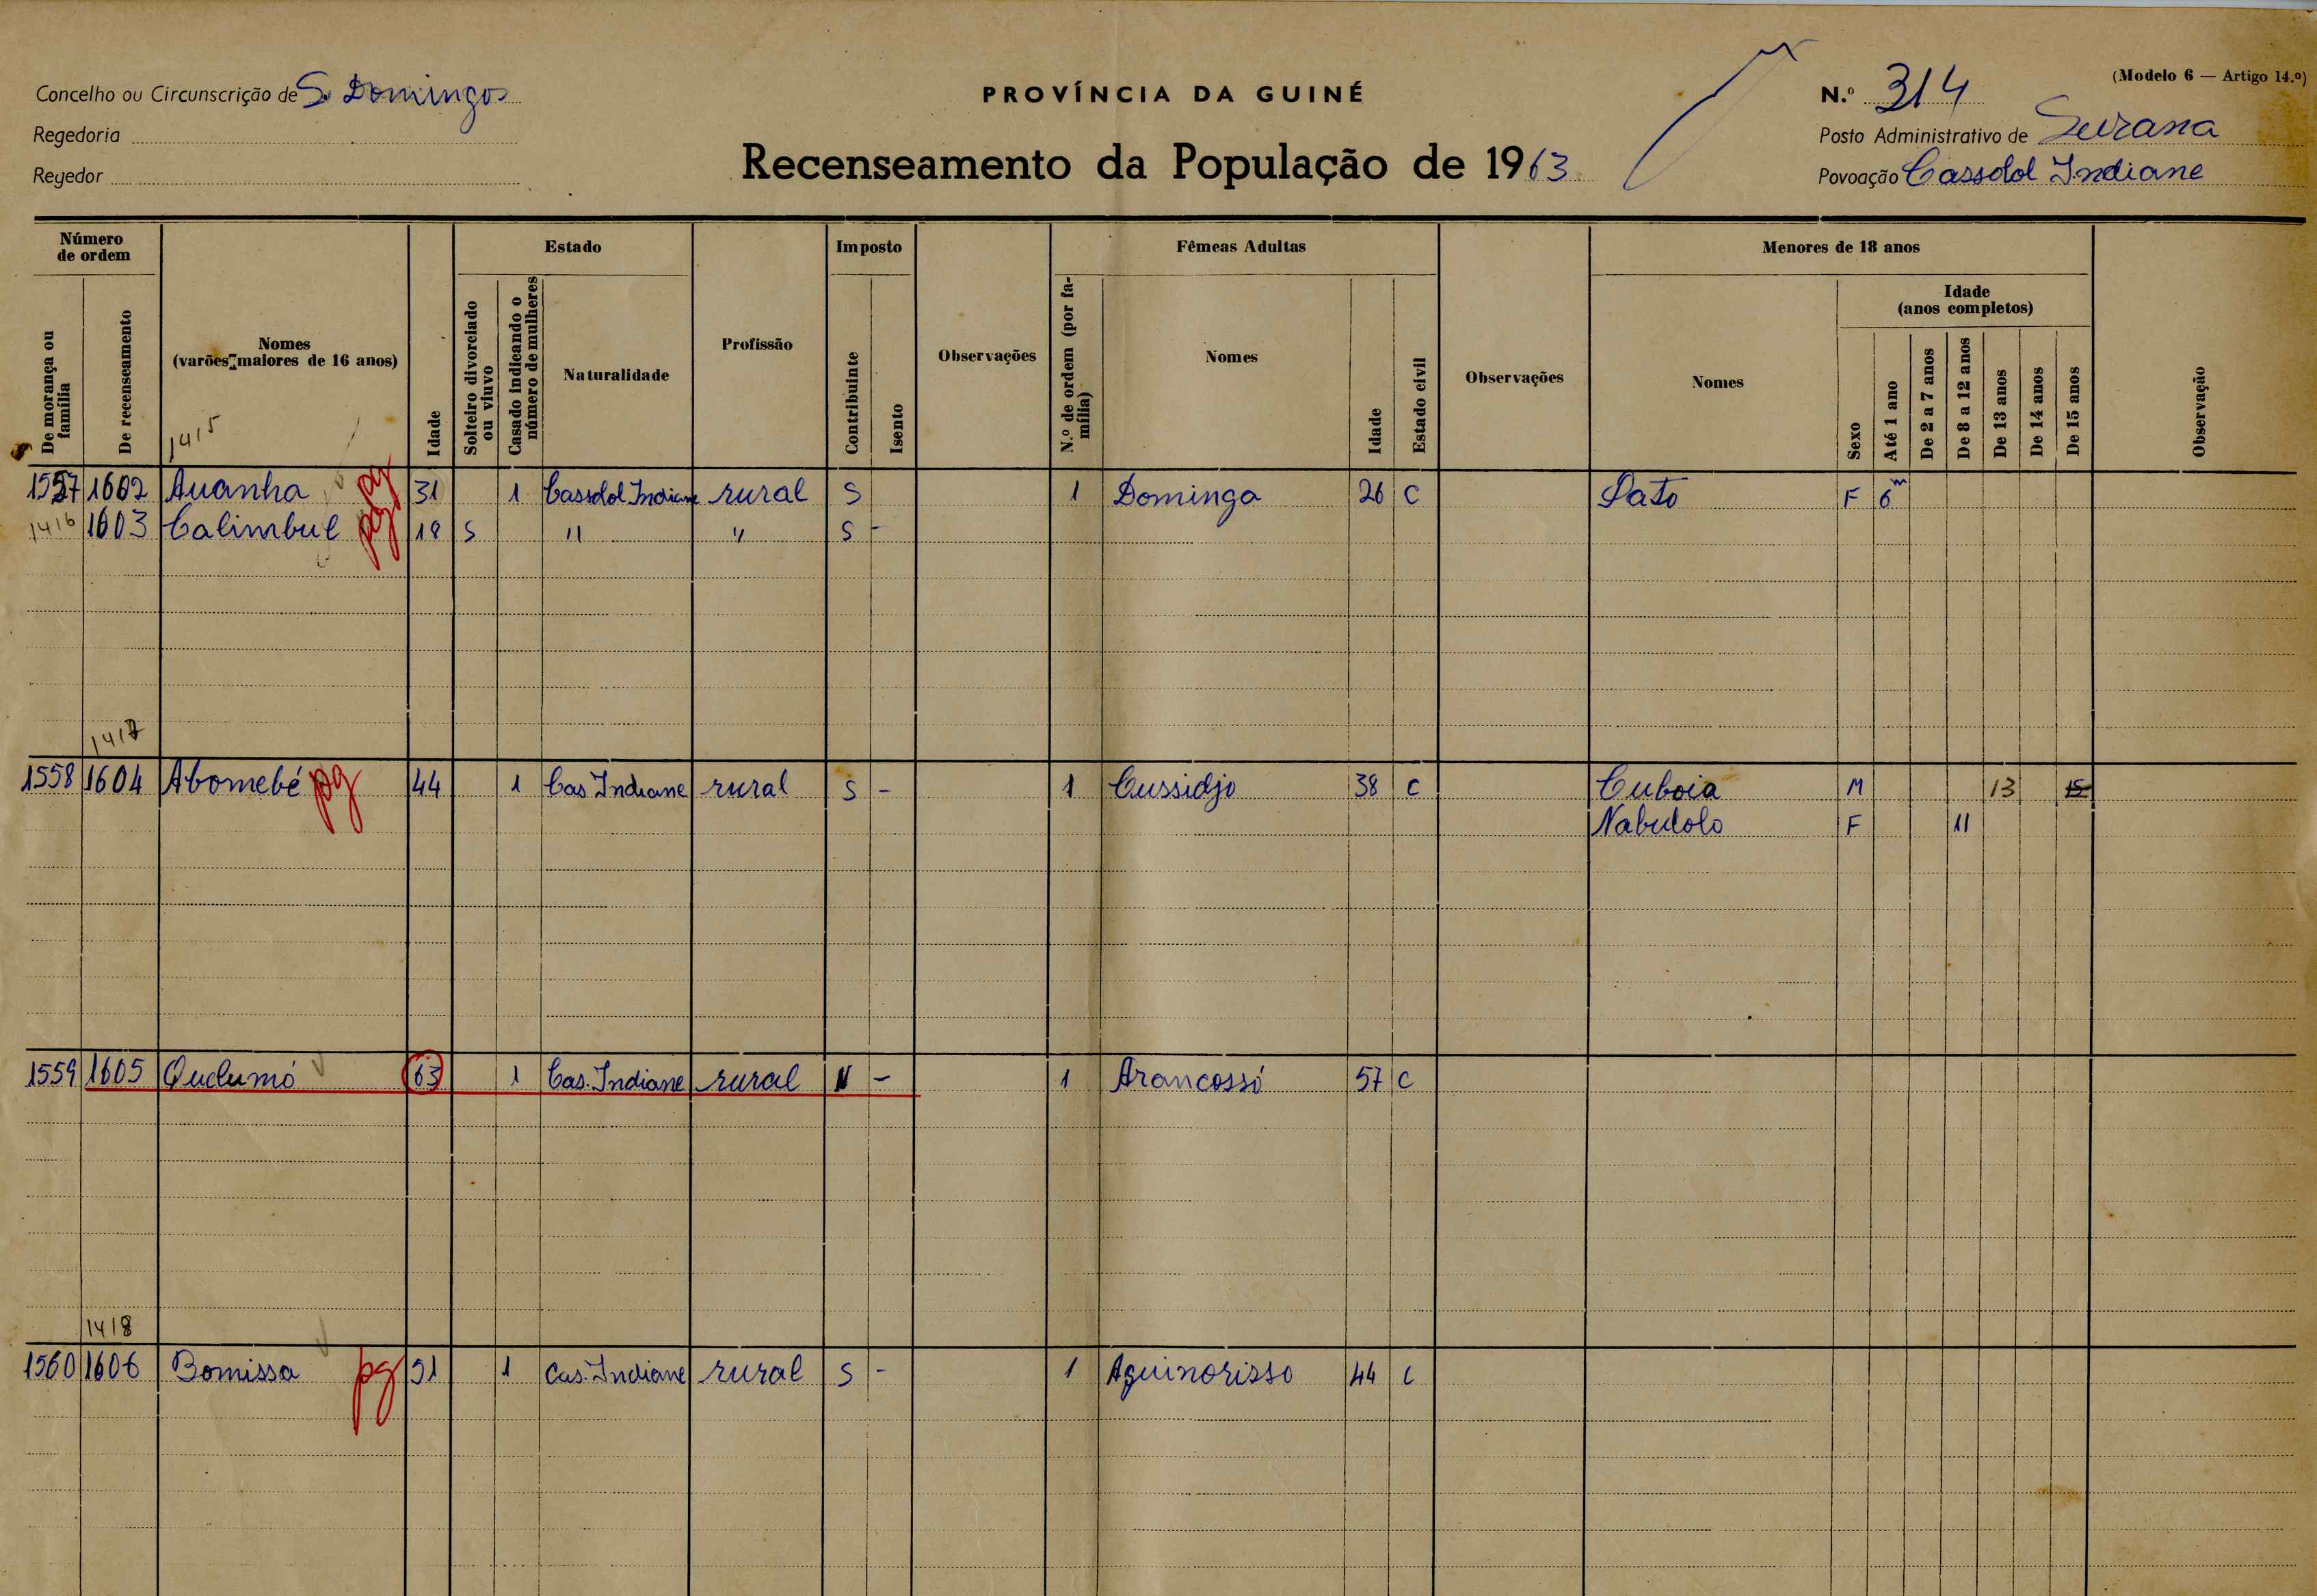 (Modelo 6 — Artigo 14.º)
Concelho ou Circunscrição de S. Domingos
PROVÍNCIA DA GUINÉ
N.º 314
Regedoria
Posto Administrativo de Suzana
Recenseamento da População de 1963
Regedor
Povoação Cassolol Indiane
Número de ordem
Estado
Imposto
Fêmeas Adultas
Menores de 18 anos
De morança ou família
De recenseamento
Nomes
(varões maiores de 16 anos)
Idade
Solteiro divorciado ou viuvo
Casado indicando o número de mulheres
Naturalidade
Profissão
Contribuinte
Isento
Observações
N.º de ordem (por família)
Nomes
Idade
Estado civil
Observações
Nomes
Sexo
Idade
(anos completos)
Até 1 ano
De 2 a 7 anos
De 8 a 12 anos
De 13 anos
De 14 anos
De 15 anos
Observação
1415
1557 1602 Auanha pg 31 1 Cassolol Indiane rural S 1 Dominga 26 C Sato F 6 m
1416 1603 Calimbul pg 18 S " " S -
1417
1558 1604 Abomebé pg 44 1 Cas. Indiane rural S - 1 Cussidjo 38 C Cuboia M 13 15
Nabulolo F 11
1559 1605 Quelumó 63 1 Cas. Indiane rural N - 1 Arancossó 57 C
1418
1560 1606 Bomissa pg 51 1 Cas. Indiane rural S - 1 Aguinorisso 44 C